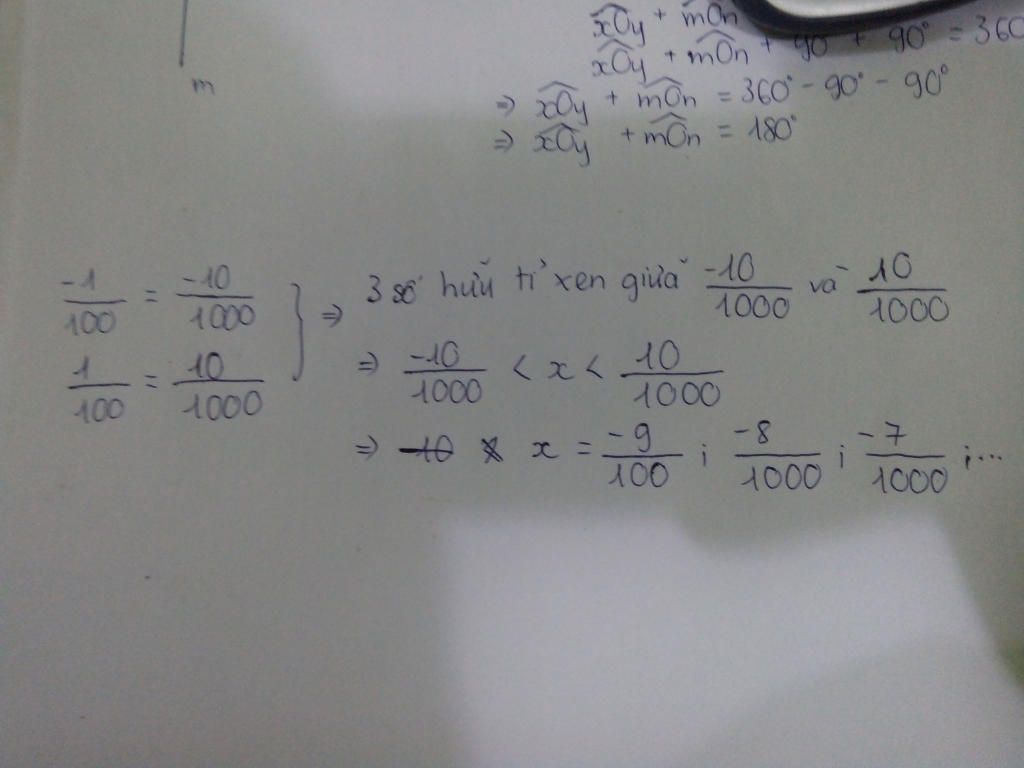 m
xOy + mOn
xOy + mOn + 90° + 90° = 360
⇒ xOy + mOn = 360° - 90° - 90°
⇒ xOy + mOn = 180°
-1/100 = -10/1000
1/100 = 10/1000
} ⇒ 3 số hữu tỉ xen giữa -10/1000 và 10/1000
⇒ -10/1000 < x < 10/1000
⇒ x = -9/100 ; -8/1000 ; -7/1000 ; ...